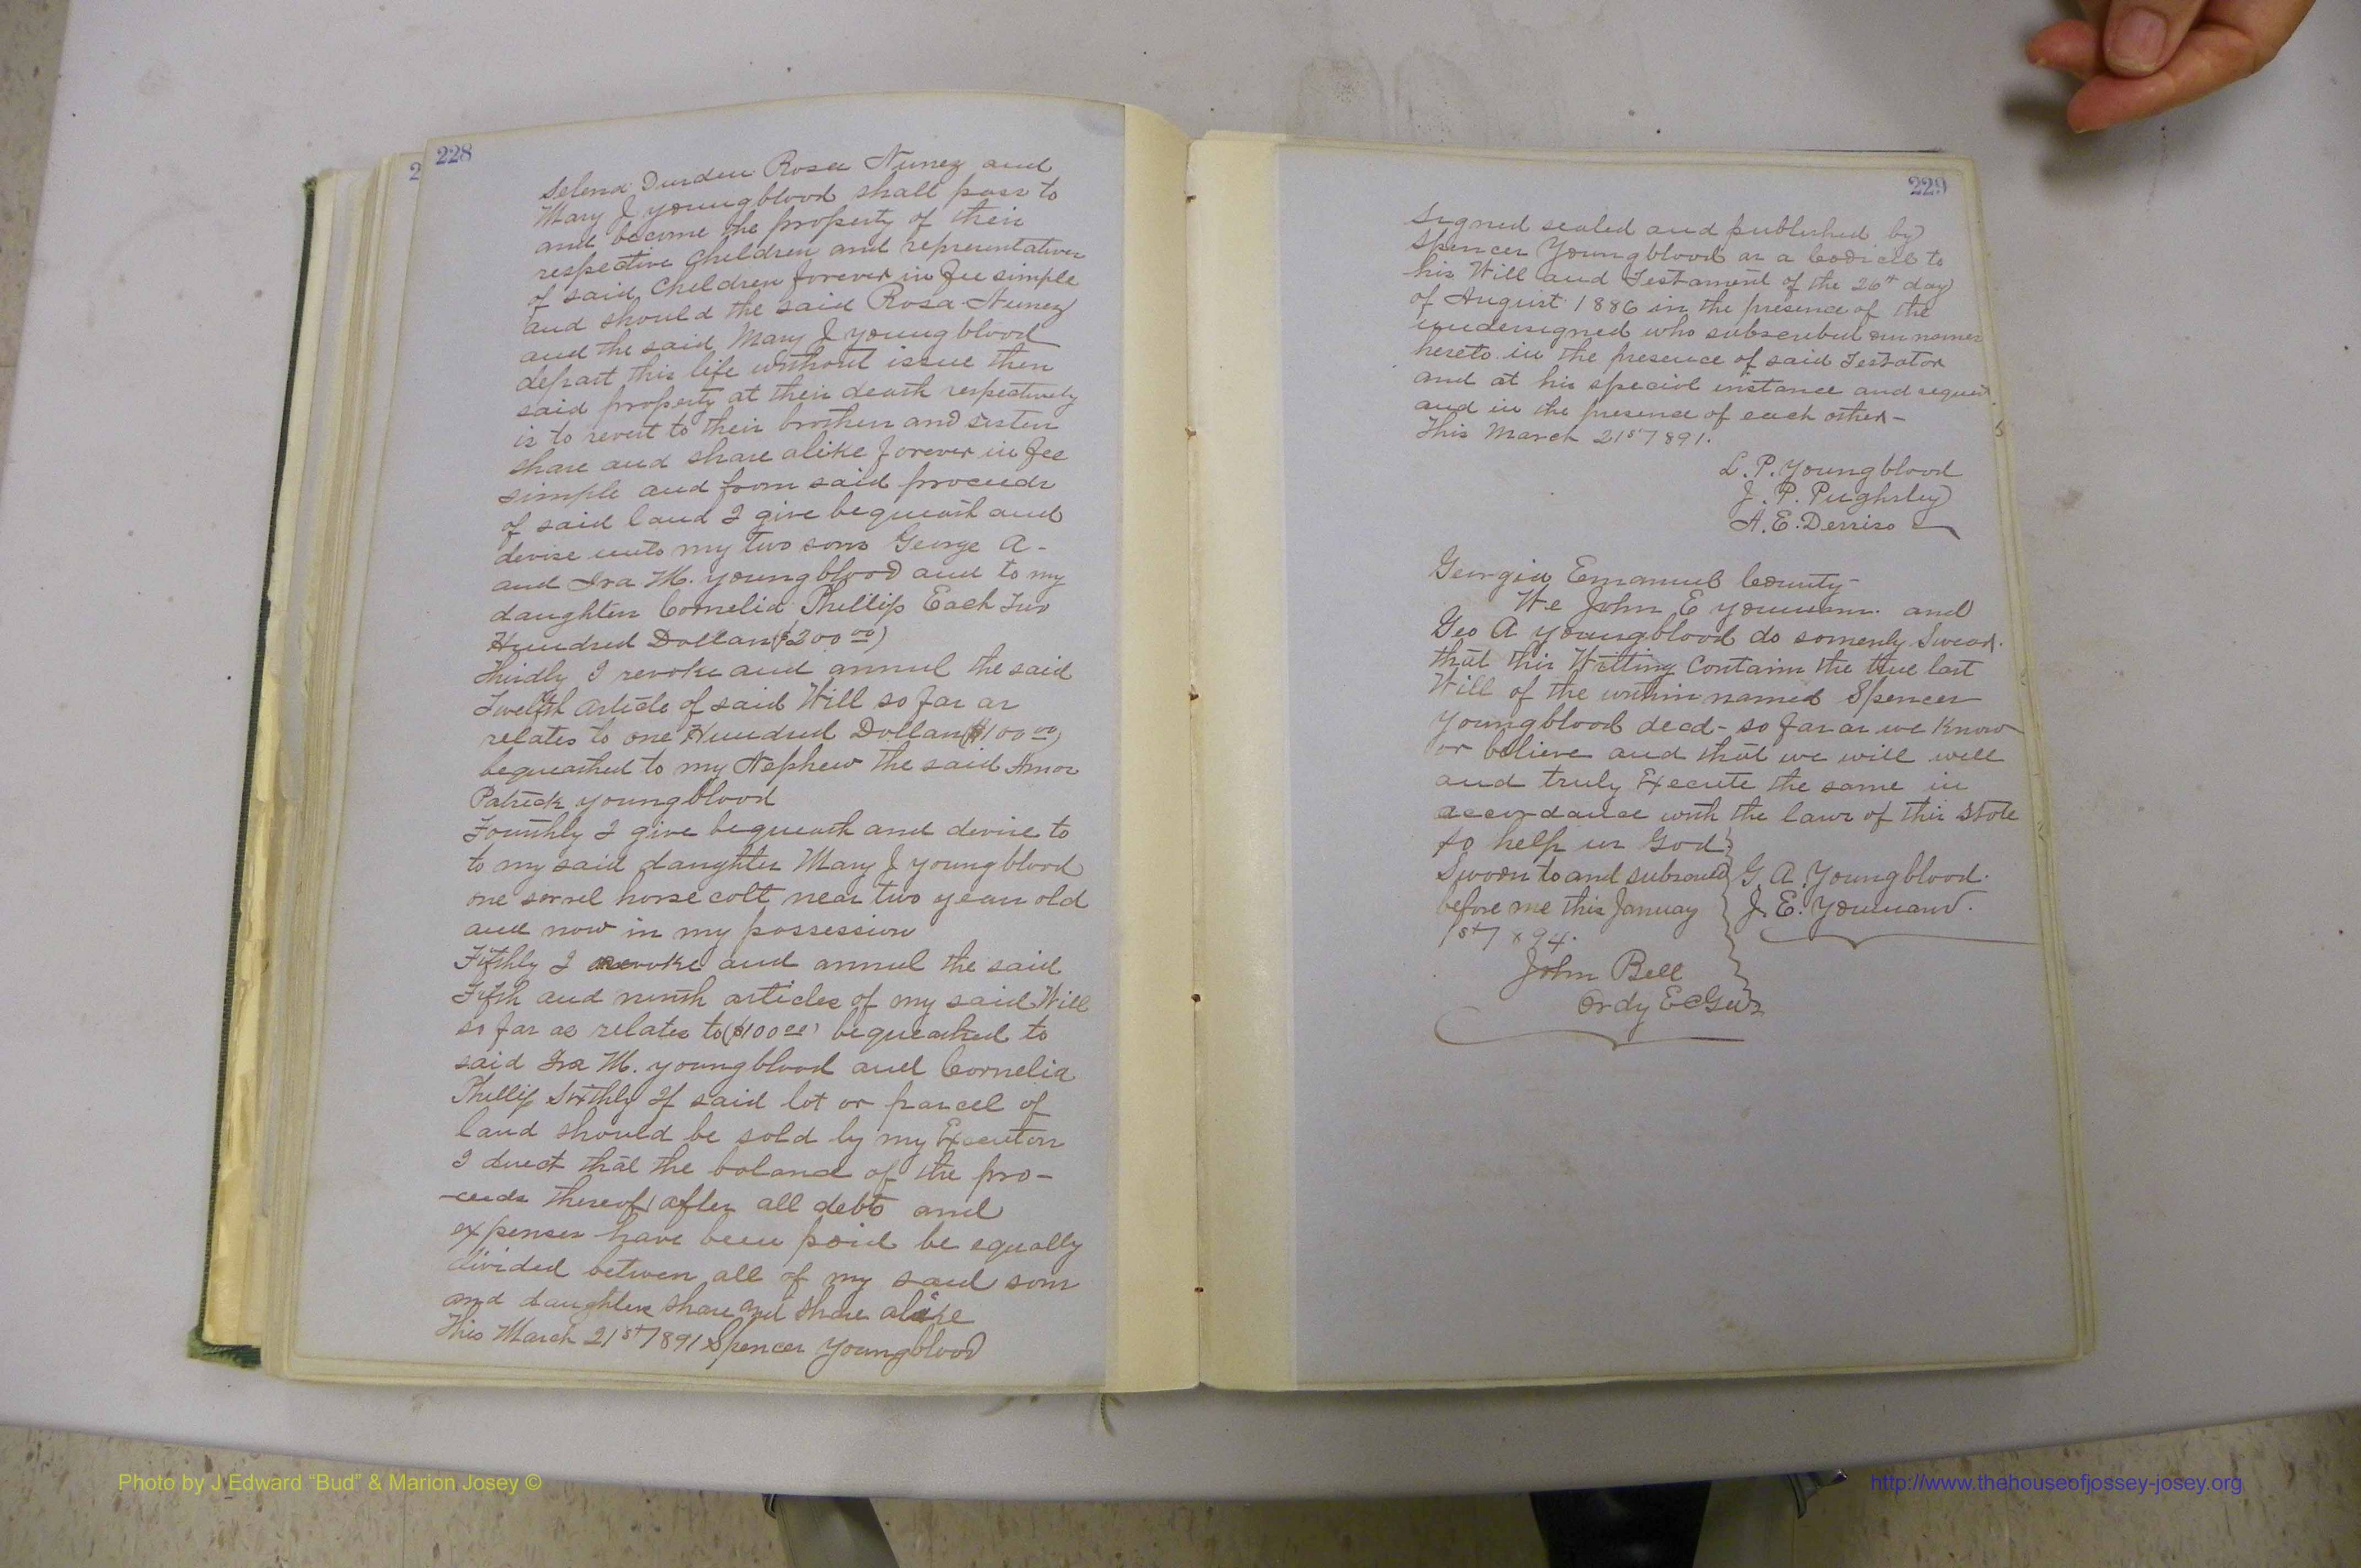 228
2
Selena Durden Rosa Nunez and
Mary J youngblood shall pass to
and become the property of their
respective Children and representatives
of said Children forever in Fee simple
and should the said Rosa Nunez
and the said Mary J youngblood
depart this life without issue then
said property at their death respectively
is to revert to their brothers and sisters
share and share alike forever in Fee
simple and from said proceeds
of said land I give bequeath and
devise unto my two sons George A-
and Ira M. youngblood and to my
daughter Cornelia Phillips Each Two
Hundred Dollars ($200 00)
Thirdly I revoke and annul the said
Twelfth article of said Will so far as
relates to one Hundred Dollars ($100 00)
bequeathed to my Nephew the said Amos
Patrick youngblood
Fourthly I give bequeath and devise to
to my said daughter Mary J youngblood
one sorrel horse colt near two years old
and now in my possession
Fifthly I revoke and annul the said
Fifth and ninth articles of my said Will
so far as relates to ($100 00) bequeathed to
said Ira M. youngblood and Cornelia
Phillips Sixthly If said lot or parcel of
land should be sold by my Executors
I direct that the balance of the pro-
-ceeds thereof after all debts and
expenses have been paid be equally
divided between all of my said sons
and daughters share and share alike
This March 21st 1891 Spencer youngblood
229
Signed sealed and published by
Spencer Youngblood as a Codicil to
his Will and Testament of the 26th day
of August 1886 in the presence of the
undersigned who subscribed our names
hereto in the presence of said Testator
and at his special instance and request
and in the presence of each other-
This March 21st 1891.
L. P. Youngblood
J. P. Pughsley
A. E. Derriso
Georgia Emanuel County-
We John E youmans and
Geo A youngblood do somenly Swear.
that this Writing Contains the true last
Will of the within named Spencer
youngblood decd- so far as we Know
or believe and that we will well
and truly Execute the same in
accordance with the laws of this State
so help us God.
Sworn to and subscribed G. A. Youngblood.
before me this January J. E. Youmans.
1st 1894.
John Bell
Ordy E C Ga
Photo by J Edward “Bud” & Marion Josey ©
http://www.thehouseofjossey-josey.org